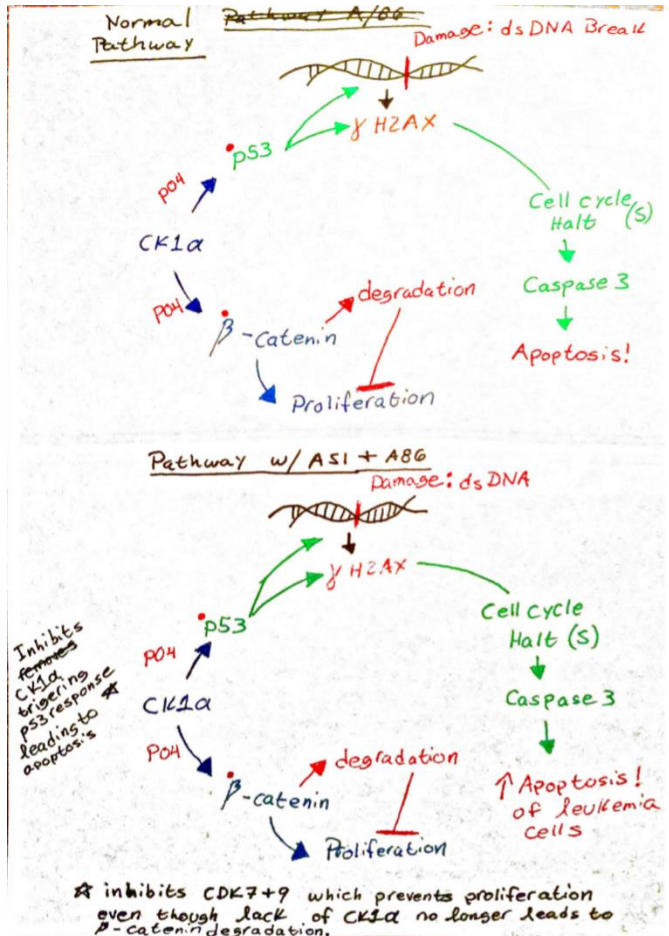 Normal
Pathway
Pathway A/86
Damage: dsDNA Break
γ H2AX
p53
PO4
CK1α
PO4
β-catenin
degradation
Proliferation
Cell cycle
Halt (S)
Caspase 3
Apoptosis!
Pathway w/ A51 + A86
Damage: dsDNA
γ H2AX
p53
PO4
CK1α
PO4
β-catenin
degradation
Proliferation
Cell cycle
Halt (S)
Caspase 3
↑ Apoptosis!
of leukemia
cells
Inhibits
removes
CK1α
trigering
p53 response ☆
leading to
apoptosis
☆ inhibits CDK7+9 which prevents proliferation
even though lack of CK1α no longer leads to
β-catenin degradation.